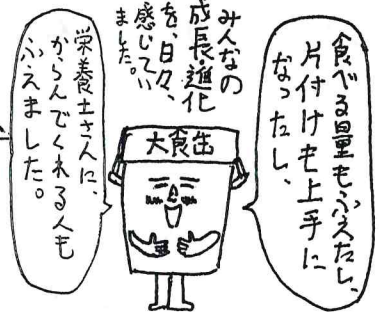 食べる量もふえたし、
片付けも上手に
なったし、
みんなの
成長・進化
を、日々、
感じてい
ました。
大食缶
栄養士さんに、
からんでくれる人も
ふえました。